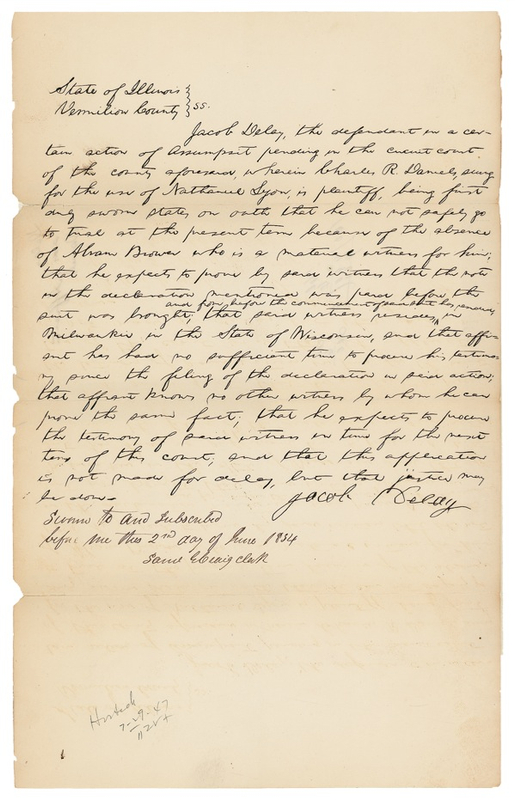 State of Illinois
Vermilion County } ss.
Jacob Delay, the defendant in a cer-
tain action of Assumpsit pending in the circuit court
of the county aforesaid, wherein Charles R. Daniels, suing
for the use of Nathaniel Lyon, is plaintiff, being first
duly sworn states on oath that he can not safely go
to trial at the present term because of the absence
of Abram Brower who is a material witness for him;
that he expects to prove by said witness that the note
in the declaration mentioned was paid before the
suit was brought; that said witness resides, and from before the commencement of said suit has resided, in
Milwaukie in the State of Wisconsin, and that affi-
ant has had no sufficient time to procure his testimo-
ny since the filing of the declaration in said action;
that affiant knows no other witness by whom he can
prove the same fact; that he expects to procure
the testimony of said witness in time for the next
term of this court, and that this application
is not made for delay, but that justice may
be done-
Jacob Delay
Sworn to and subscribed
before me this 2nd day of June 1854
Saml G Craig clerk
7-29-47